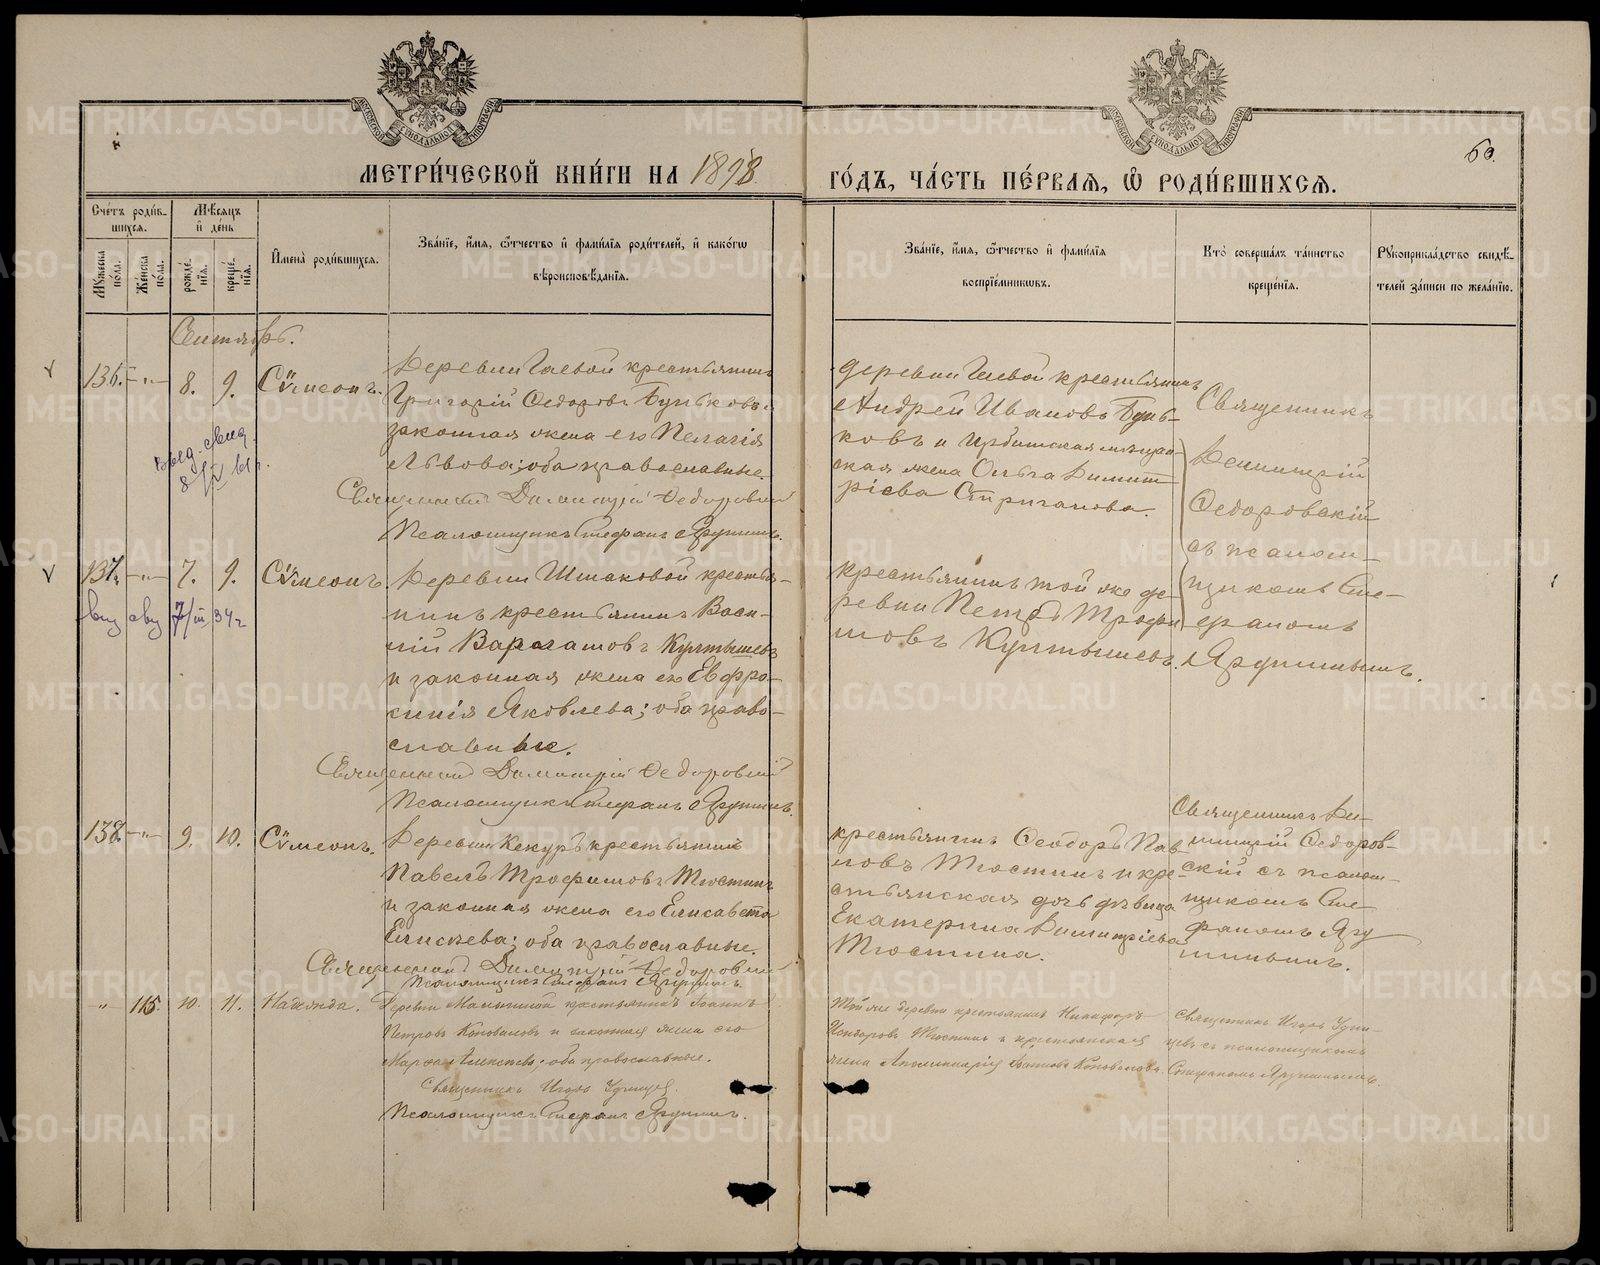 МЕТРИ́ЧЕСКОЙ КНИ́ГИ НА 1898
ГО́ДЪ, ЧА́СТЬ ПЕ́РВАѦ, Ѽ РОДИ́ВШИХСѦ.
60.
Сче́тъ роди́в-
шихсѧ.
Мѣ́сѧцъ
и҆ де́нь
И҆мена̀ роди́вшихсѧ.
Зва́нїе, и҆́мѧ, ѻ҆́тчество и҆ фами́лїѧ роди́телей, и҆ како́гѡ
вѣроисповѣ́данїѧ.
Мꙋ́жеска
по́ла.
Же́нска
по́ла.
рожде́-
нїѧ.
креще́-
нїѧ.
Зва́нїе, и҆́мѧ, ѻ҆́тчество и҆ фами́лїѧ
воспрїе́мникѡвъ.
Кто̀ соверша́лъ та́инство
креще́нїѧ.
Рꙋкоприкла́дство свидѣ́-
телей за́писи по жела́нїю.
Сентябрь.
136. 8. 9. Сѷмеонъ.
Деревни Гаевой крестьянинъ
Григорій Ѳедоровъ Буньковъ и
законная жена его Пелагія
Львова; оба православные.
Священникъ Димитрій Ѳедоровскій
Псаломщикъ Стефанъ Ярушинъ.
деревни Гаевой крестьянинъ
Андрей Ивановъ Бунь-
ковъ и Ирбитская мѣщан-
ская жена Ольга Димит-
рієва Стриганова.
Священникъ
Димитрій
Ѳедоровскій
съ псалом-
щикомъ Сте-
фаномъ
Ярушинымъ.
137. 7. 9. Сѷмеонъ.
7/III 34 г
Деревни Шмаковой крестья-
нинъ крестьянинъ Васи-
лій Варлаамовъ Култышевъ
и законная жена его Евфро-
синія Яковлева; оба право-
славные.
Священникъ Димитрій Ѳедоровскій
Псаломщикъ Стефанъ Ярушинъ.
крестьянинъ той же де-
ревни Петръ Трофи-
мовъ Култышевъ.
138. 9. 10. Сѷмеонъ.
Деревни Кекуръ крестьянинъ
Павелъ Трофимовъ Тюстинъ
и законная жена его Елисавета
Елисѣева; оба православные.
Священникъ Димитрій Ѳедоровскій
Псаломщикъ Стефанъ Ярушинъ.
крестьянинъ Ѳеодоръ Пав-
ловъ Тюстинъ и кре-
стьянская дочь дѣвица
Екатерина Димитріева
Тюстина.
Священникъ Ди-
митрій Ѳедоров-
скій съ псалом-
щикомъ Сте-
фаномъ Яру-
шинымъ.
115. 10. 11. Надежда.
Деревни крестьянинъ Іоаннъ
Петровъ Коноваловъ и законная жена его
Марѳа Алексѣева; оба православные.
Священникъ Игорь
Псаломщикъ Стефанъ Ярушинъ.
Той же деревни крестьянинъ Никифоръ
Тюстинъ и крестьянская
жена Аполлинарія Коновалова.
Священникъ Игорь
съ псаломщикомъ
Стефаномъ Ярушинымъ.
METRIKI.GASO-URAL.RU